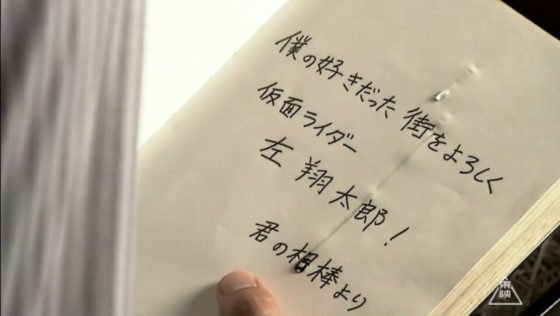 僕の好きだった街をよろしく
仮面ライダー
左 翔太郎!
君の相棒より
東映